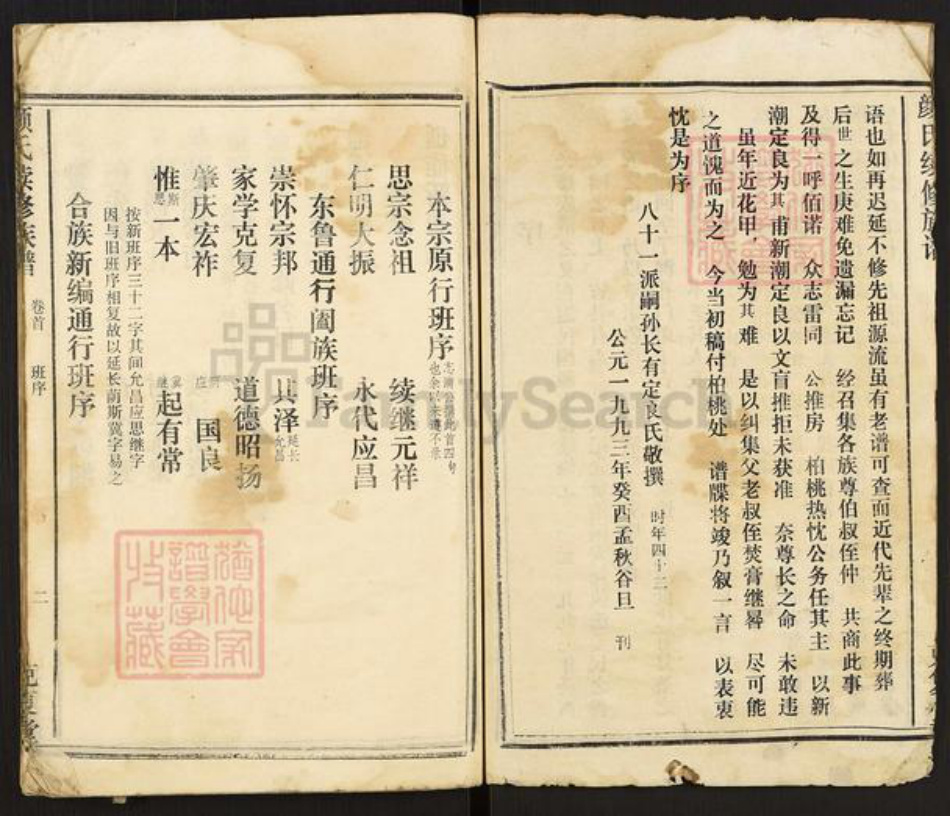 颜氏续修族谱
语也如再迟延不修先祖源流虽有老谱可查面近代先辈之终期葬
后世之生庚难免遗漏忘记 经召集各族尊伯叔侄仲 共商此事
及得一呼佰诺 众志雷同 公推房 柏桃热忱公务任其主 以新
潮定良为其甫新潮定良以文盲推拒未获准 奈尊长之命 未敢违
虽年近花甲,勉为其难 是以纠集父老叔侄焚膏继晷 尽可能
之道愧而为之 今当初稿付柏桃处 谱牒将竣乃叙一言 以表衷
忱是为序
八十一派嗣孙长有定良氏敬撰 时年四十二
公元一九九三年癸酉孟秋谷旦 刊
本宗原行班序
思宗念祖 续继元祥
仁明大振 永代应昌
东鲁通行阖族班序
崇怀宗邦 其泽延长允昌
家学克复 道德昭扬
肇庆宏祚 国良
惟斯思一本 冀继起有常
按新班序三十二字其间允昌应思继字
因与旧班序相复故以延长荫斯冀字易之
合族新编通行班序
颜氏续修族谱 卷首 班序 二
FamilySearch